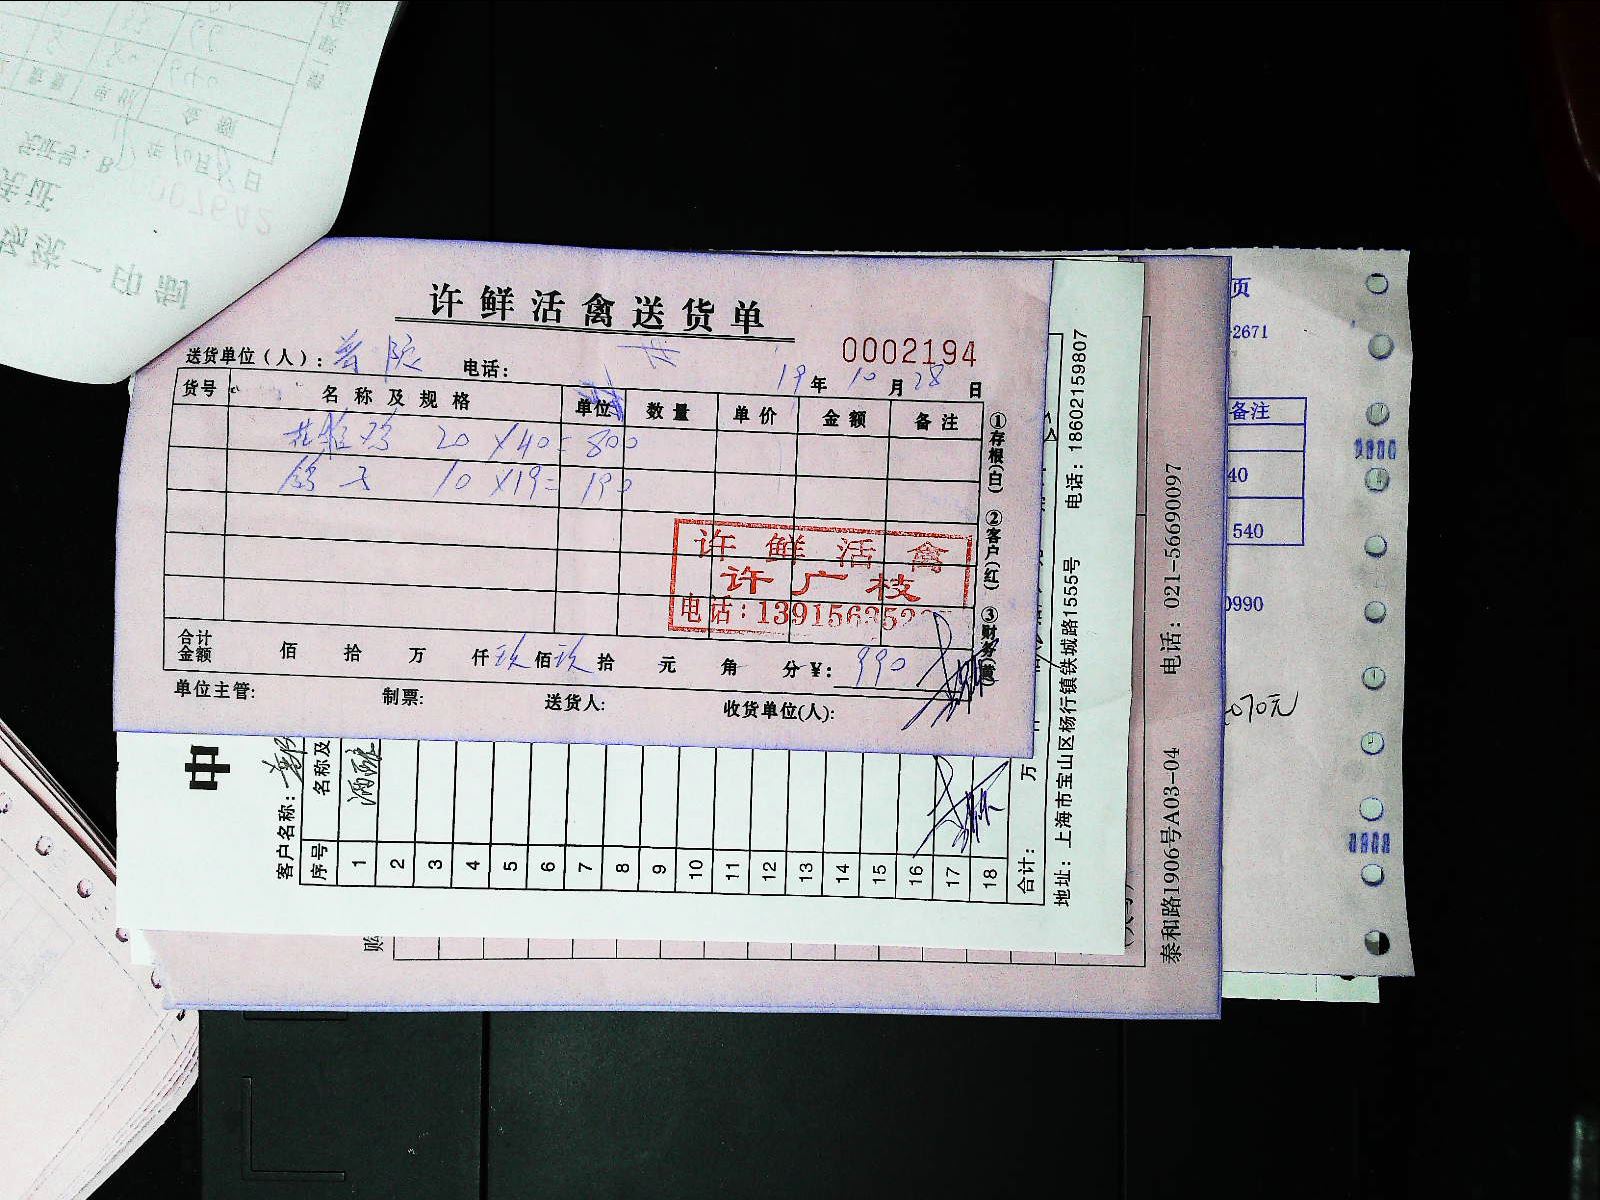 许鲜活禽送货单
0002194
送货单位（人）： 普陀 电话：
19年10月28日
货号 名称及规格 单位 数量 单价 金额 备注
20 X40=800
鸽子 10 X19=190
①存根(白) ②客户(红) ③财务(黄)
许鲜活禽
许广枝
电话：139156352
合计金额 佰 拾 万 仟玖佰玖拾 元 角 分¥: 990
单位主管: 制票: 送货人: 收货单位(人):
中
客户名称：
序号 名称及
1 酒酿
2
3
4
5
6
7
8
9
10
11
12
13
14
15
16
17
18
合计： 万
地址：上海市宝山区杨行镇铁城路1555号 电话：18602159807
泰和路1906号A03-04 电话：021-56690097
页
2671
备注
40
540
0990
2070元
金额
凭证号：B
年10月 日
0007642
凭证
统一印制